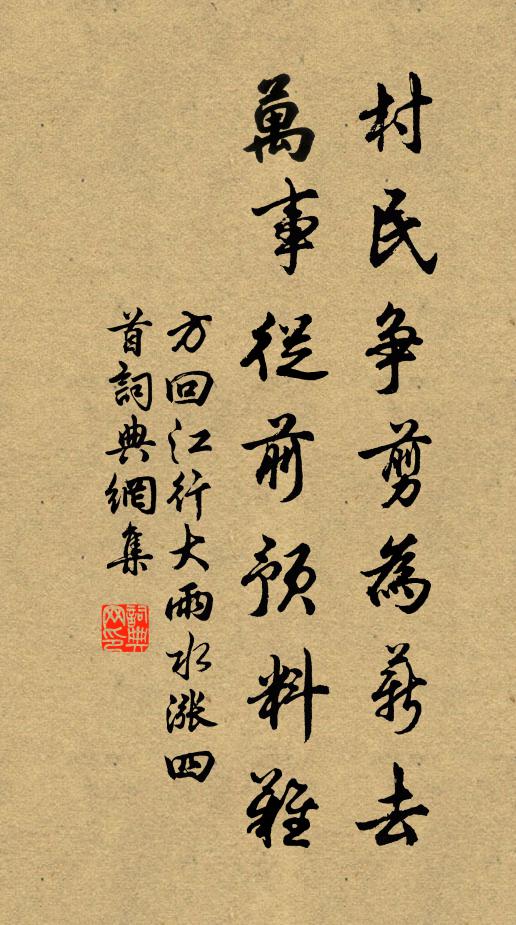 村民争剪為薪去
萬事從前預料難
方回江行大雨水漲四
首詞典網集
詞典
网印